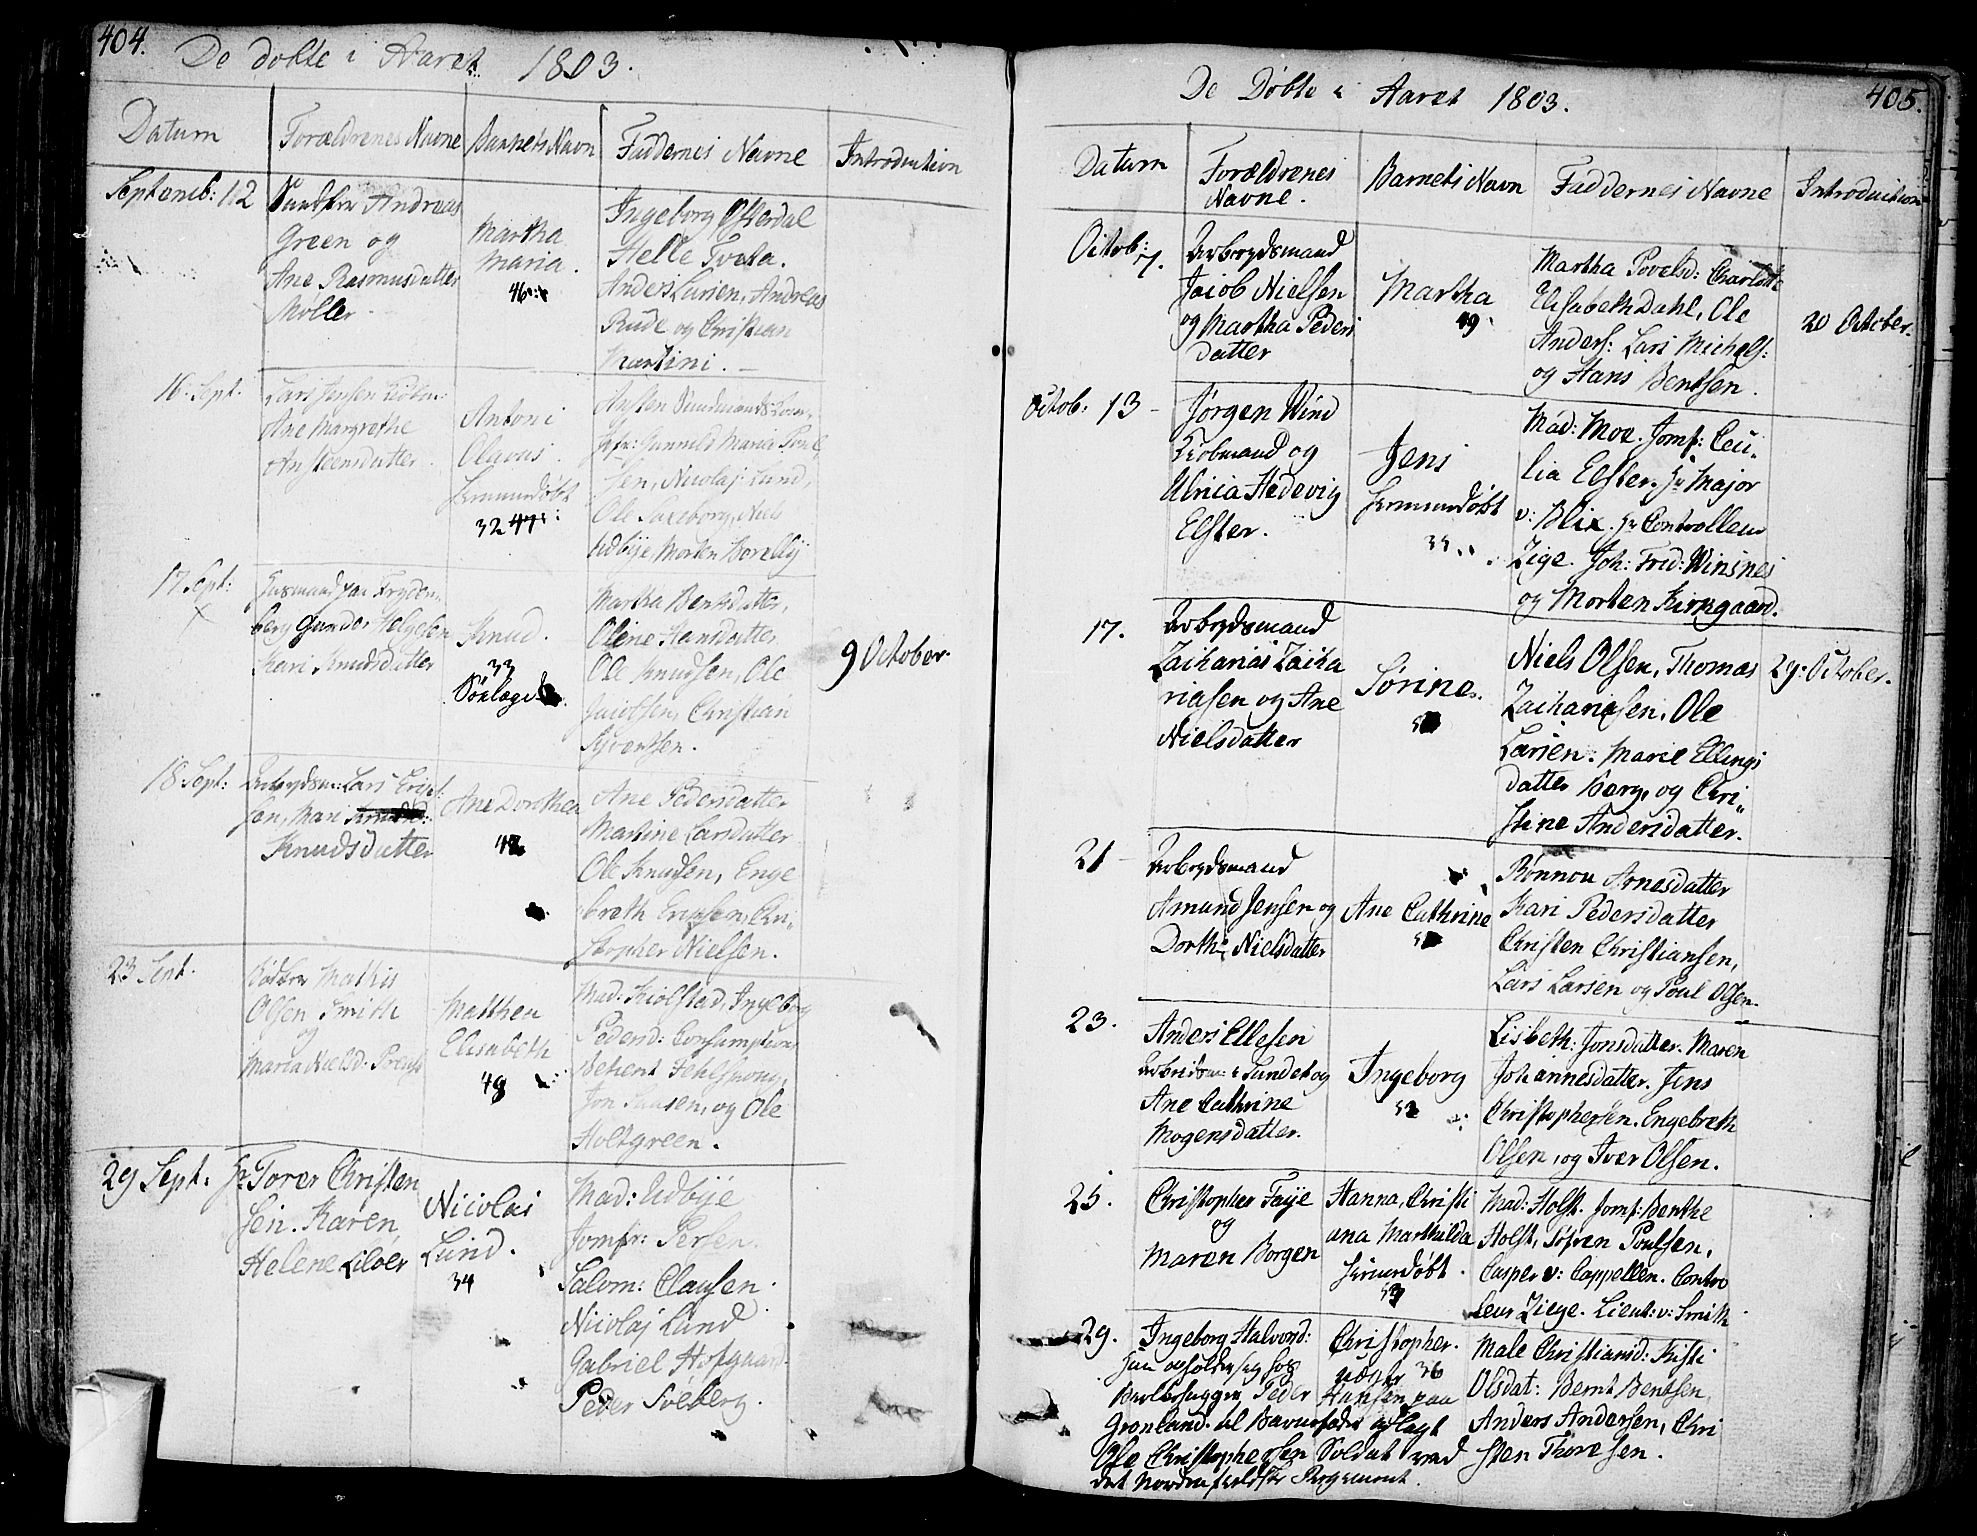 404.
De døbte i Aaret 1803.
Datum
Forældrenes Navne
Barnets Navn
Faddernes Navne
Introduction
Septemb: 12
Andreas
Green og
Ane Rasmusdatter
Møller
Martha
Maria.
46
Ingeborg Osterdal
Helle Tveta.
Anders Larsen, Andreas
Rude og Christian
Martini.
16. Sept.
Lars Jensen
Ane Margrethe
Anstensdatter.
Antoni
Olavus.
hiemmedøbt
32
Gunnild Maria Poul
sen, Nicolaj Lund,
Ole Saxeborg, Niels
Udbÿe Morten
17 Sept:
Gunder Helgesen
Kari Knudsdatter
Knud.
33
Martha Bentsdatter,
Olene Hansdatter
Ole Knudsen, Ole
Jacobsen, Christian
Syvertsen.
9 October.
18. Sept:
Arbeydsm: Lars Erich
sen, Mari
Knudsdatter
Ane Dorthea
Ane Pedersdatter
Martine Larsdatter
Ole Knudsen, Enge
breth Erichsen, Chri„
stopher Nielsen.
23 Sept.
Mathis
Olsen Smith
og
Maria Nielsd:
Matthea
Elisabeth
48
Mad: Kiølstad, Ingeborg
Pedersd: Consumptions
Betient
Jon Hansen, og Ole
Holtgreen.
29 Sept.
Hr Torer Christen
sen. Karen
Helene Lilloer
Nicolai
Lund.
34
Mad: Udbÿe
Jomfr: Persen
Salom: Clausen.
Nicolaj Lund
Gabriel Hofgaard.
Peder Solberg.
De Døbte i Aaret 1803.
405.
Datum
Forældrenes
Navne.
Barnets Navn
Faddernes Navne
Introduction
Octob: 7.
Arbeydsmand
Jacob Nielsen
og Martha Peders
datter
Martha
49
Martha Povelsd: Charlotte
Elisabeth Dahl, Ole
Anders: Lars Michels:
og Hans Bentsen.
20 October.
Octob: 13
Jørgen Wind
Kiøbmand og
Ulricia Hedevig
Elster.
Jens
hiemmedøbt
35
Mad: Moe. Jomf: Ceci-
lia Elster. Hr Major
v: Blix. Hr Controlleur
Zige. Joh: Frid: Winsnes
og Morten Kirkgaard.
17.
Arbeydsmand
Zacharias Zacha
riasen og Ane
Nielsdatter
Sørine.
Niels Olsen, Thomas
Zachariasen, Ole
Larsen. Marie Ellings
datter Berg, og Chri„
stine Andersdatter.
29. October.
21
Arbeydsmand
Amund Jensen og
Dorthe Nielsdatter
Ane Cathrine
Rønnou Arnesdatter
Kari Pedersdatter
Christen Christiansen,
Lars Larsen og Poul Olsen.
23.
Anders Ellefsen
Arbeidsm: i Sundet og
Ane Cathrine
Mogensdatter.
Ingeborg
52
Lisbeth: Jonsdatter. Maren
Johannesdatter. Jens
Christophersen. Engebreth
Olsen, og Iver Olsen.
25.
Christopher Faÿe
og
Maren Borgen
Hanna, Christi
ana Marthilda
hiemmedøbt.
53
Mad: Holst. Jomf: Benthe
Holst, Søfren Poulsen,
Casper v: Cappellen. Contro
leur Ziege. Lieut: v: Smith
29.
Ingeborg Halvord:
hun opholder sig hos
Peder Hansen paa
Grønland. til Barnefader opl
agt
Ole Christophersen Soldat ved
det Nordenfieldske Regement.
Christopher.
uægte 36
Male Christiansd: Kisti
Olsdat: Bernt Bentsen,
Anders Andersen, Chri
sten Thoresen.